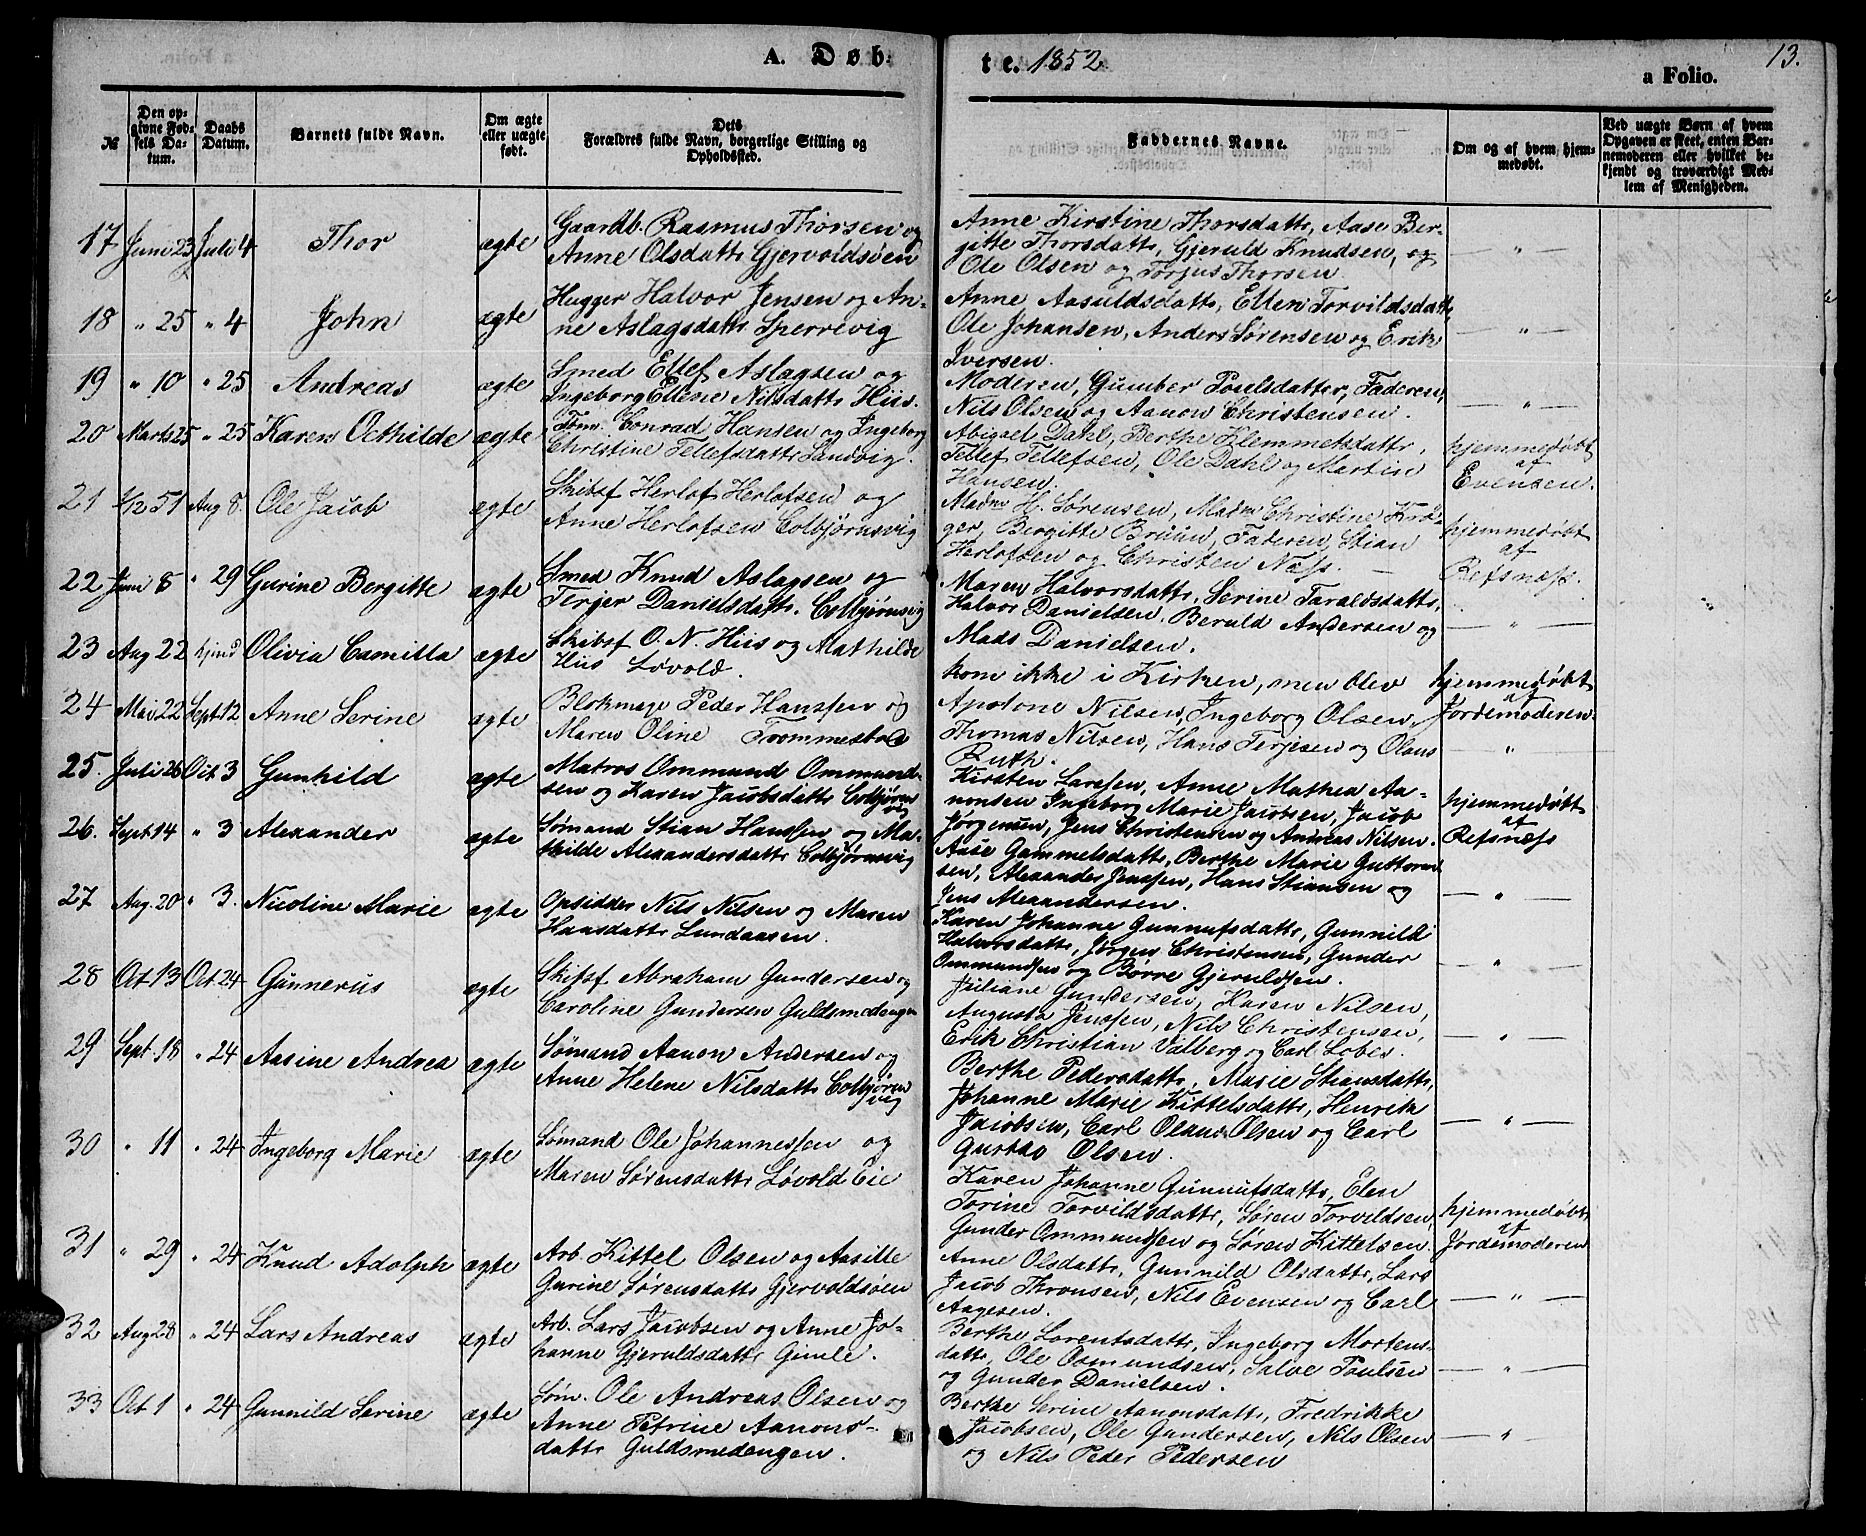 A. Døb-
te. 1852
13.
a Folio.
№
Den op-
givne Fød-
sels Da-
tum.
Daabs
Datum.
Barnets fulde Navn.
Om ægte
eller uægte
født.
Dets
Forældres fulde Navn, borgerlige Stilling og
Opholdssted.
Faddernes Navne.
Om og af hvem hjem-
medøbt.
Ved uægte Børn af hvem
Opgaven er skeet, enten Bar-
nemoderen eller hvilket be-
kjendt og troværdigt Med-
lem af Menigheden.
17 Juni 23 Juli 4 Thor ægte
Gaardb. Rasmus Thorsen og
Anne Olsdattr Gjervoldsøen
Anne Kirstine Thorsdattr, Aase Ber-
gitte Thorsdattr, Gjeruld Knudsen, og
Ole Olsen og Torjus Thorsen
— " —
18 " 25 " 4 John ægte
Hugger Halvor Jensen og An-
ne Aslagsdattr Sperrevig
Anne Aasuldsdattr, Ellen Torvildsdattr,
Ole Johansen, Anders Sørensen og Erik
Iversen.
— " —
19 " 10 " 25 Andreas ægte
Smed Ellef Aslagsen og
Ingeborg Ellene Nilsdattr Hiis.
Moderen, Gunber Poulsdatter, Faderen,
Nils Olsen og Aanon Christensen.
— " —
20 Marts 25 " 25 Karen Octhilde ægte
Tøm. Conrad Hansen og Ingeborg
Christine Tellefsdattr Sandvig.
Abigael Dahl, Berthe Klemmetsdattr,
Tellef Tellefsen, Ole Dahl og Martin
Hansen.
hjemmedøbt
af
Evensen.
21 5/12 51 Aug 8. Ole Jacob ægte
Skibsf Herlof Herlofsen og
Anne Herlofsen Colbjørnsvig
Madm H. Sørensen, Madm Christine Krø-
ger, Bergitte Bruun, Faderen, Stian
Herlofsen og Christen Næss. —
hjemmedøbt
af
Refsnæss.
22 Juni 8 " 29 Gurine Bergitte ægte
Smed Knud Aslagsen og
Terjer Danielsdattr. Colbjørnsvig
Maren Halvorsdattr, Serine Taraldsdattr,
Halvor Danielsen, Beruld Andersen og
Mads Danielsen.
— " —
23 Aug 22 hjmd Olivia Camilla ægte
Skibsf O. N. Hiis og Mathilde
Hiis Løvold.
kom ikke i Kirken, men blev
hjemmedøbt
af
Jordemoderen.
24 Mai 22 Sept 12 Anne Serine ægte
Blokmager Peder Hanssen og
Maren Oline Trommestold
Apolone Nilsen, Ingeborg Olsen,
Thomas Nilsen, Hans Terjesen og Olaus
Ruth.
— " —
25. Juli 26 Oct 3 Gunhild ægte
Matros Ommund Ommund-
sen og Karen Jacobsdattr Colbjørns
vig
Kirsten Larssen, Anne Mathea Aa-
nonsen Ingeborg Marie Jacobsen, Jacob
Jørgensen, Jens Christensen og Andreas Nilsen.
hjemmedøbt
af
Refsnæss
26. Sept 14 " 3 Alexander ægte
Sømand Stian Hanssen og Ma-
thilde Alexandersdattr Colbjørnsvig
Aase Gammelsdattr, Berthe Marie Guttorm-
sen, Alexander Jenssen, Hans Stiansen og
Jens Alexandersen.
— " —
27 Aug. 20 " 3. Nicoline Marie ægte
Opsidder Nils Nilsen og Maren
Hansdattr Lundaasen.
Karen Johanne Gunnufsdattr, Gunnild
Halvorsdattr, Jørgen Christensen, Gunder
Ommundsen og Børre Gjeruldsen.
— " —
28 Oct 13 Oct. 24 Gunnerus ægte
Skibsf Abraham Gundersen og
Caroline Gundersen Guldsmedengen
Juliane Gundersen, Karen Nilsen,
Augusta Jenssen, Nils Christensen,
Erik Christian Valberg og Carl Lobes.
— " —
29 Sept. 18 " 24 Aasine Andrea ægte
Sømand Aanon Andersen og
Anne Helene Nilsdattr Colbjørns
vig
Berthe Pedersdattr, Marie Stiansdattr,
Johanne Marie Kittelsdattr, Henrik
Jacobsen, Carl Olaus Olsen og Carl
Gustav Olsen.
— " —
30 " 11 " 24 Ingeborg Marie ægte
Sømand Ole Johannessen og
Maren Sørensdattr Løvold Eie
Karen Johanne Gunnufsdattr, Elen
Torine Torvildsdattr, Søren Torvildsen,
Gunder Ommundsen og Søren Kittelsen.
hjemmedøbt
af
Jordemoderen
31 " 29 " 24 Knud Adolph ægte
Arb. Kittel Olsen og Aasille
Gurine Sørensdattr Gjervoldsøen
Anne Olsdattr, Gunnild Olsdattr, Lars
Jacob Thronsen, Nils Evensen og Carl
Aagesen.
— " —
32 Aug 28 " 24 Lars Andreas ægte
Arb. Lars Jacobsen og Anne Jo-
hanne Gjeruldsdattr Gimle.
Berthe Lorentsdattr, Ingeborg Mortens-
dattr, Ole Osmundsen, Salve Poulsen
og Gunder Danielsen.
— " —
33 Oct 1 " 24 Gunnild Serine ægte
Søm. Ole Andreas Olsen og
Anne Petrine Aanons-
dattr Guldsmedengen.
Berthe Serene Aanonsdattr, Fredrikke
Jacobsen, Ole Gundersen, Nils Olsen
og Nils Peder Pedersen
— " —